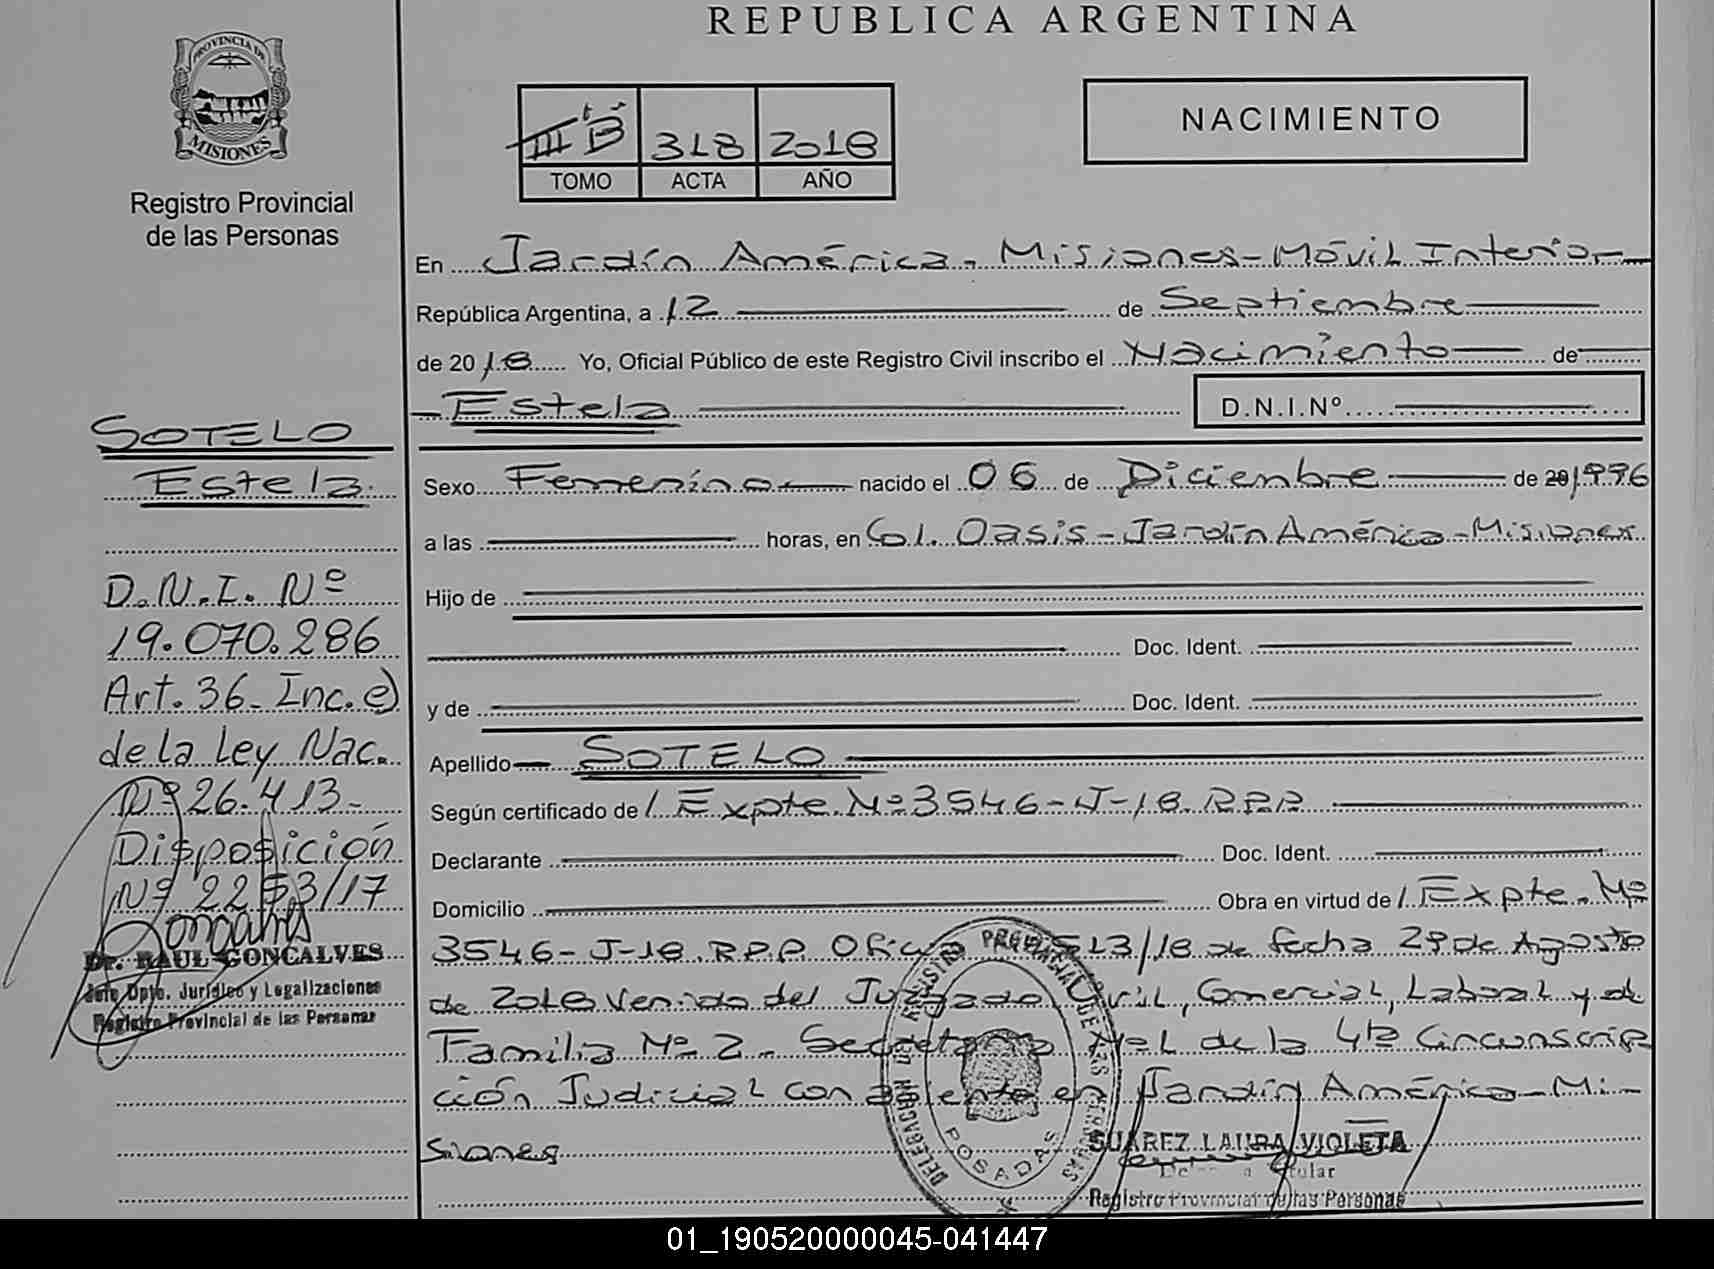 REPUBLICA ARGENTINA
PROVINCIA DE
MISIONES
Registro Provincial
de las Personas
III B 318 2018
TOMO ACTA AÑO
NACIMIENTO
En Jardín América - Misiones - Móvil Interior
República Argentina, a 12 de Septiembre
de 2018 Yo, Oficial Público de este Registro Civil inscribo el Nacimiento de
Estela D.N.I.Nº
Sexo Femenino nacido el 06 de Diciembre de 20 1996
a las horas, en Col. Oasis - Jardín América - Misiones
Hijo de
Doc. Ident.
y de Doc. Ident.
Apellido SOTELO
Según certificado de Expte. Nº 3546-J-18 R.P.P.
Declarante Doc. Ident.
Domicilio Obra en virtud de Expte. Nº
3546-J-18 R.P.P. Oficio 513/18 de fecha 29 de Agosto
de 2018 Venido del Juzgado Civil, Comercial, Laboral y de
Familia Nº 2 - Secretaria Nº 1 de la 4ta Circunscrip
ción Judicial con asiento en Jardín América - Mi-
siones
SOTELO
Estela
D.N.I. Nº
19.070.286
Art. 36 - Inc. e)
de la Ley Nac.
Nº 26.413 -
Disposición
Nº 2253/17
Dr. RAUL GONCALVES
Jefe Dpto. Jurídico y Legalizaciones
Registro Provincial de las Personas
POSADAS
SUAREZ LAURA VIOLETA
Registro Provincial de las Personas
01_190520000045-041447